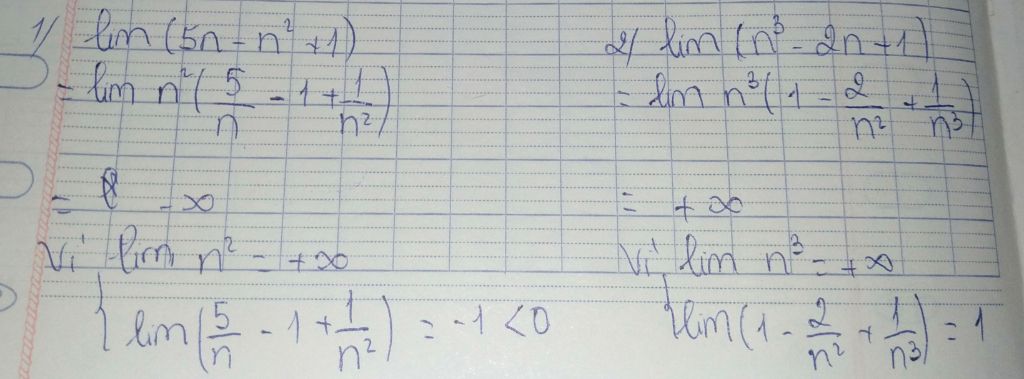 1/ lim (5n - n² + 1)
= lim n² (5/n - 1 + 1/n²)
= -∞
Vì lim n² = +∞
{ lim (5/n - 1 + 1/n²) = -1 < 0
2/ lim (n³ - 2n + 1)
= lim n³ (1 - 2/n² + 1/n³)
= +∞
Vì lim n³ = +∞
{ lim (1 - 2/n² + 1/n³) = 1